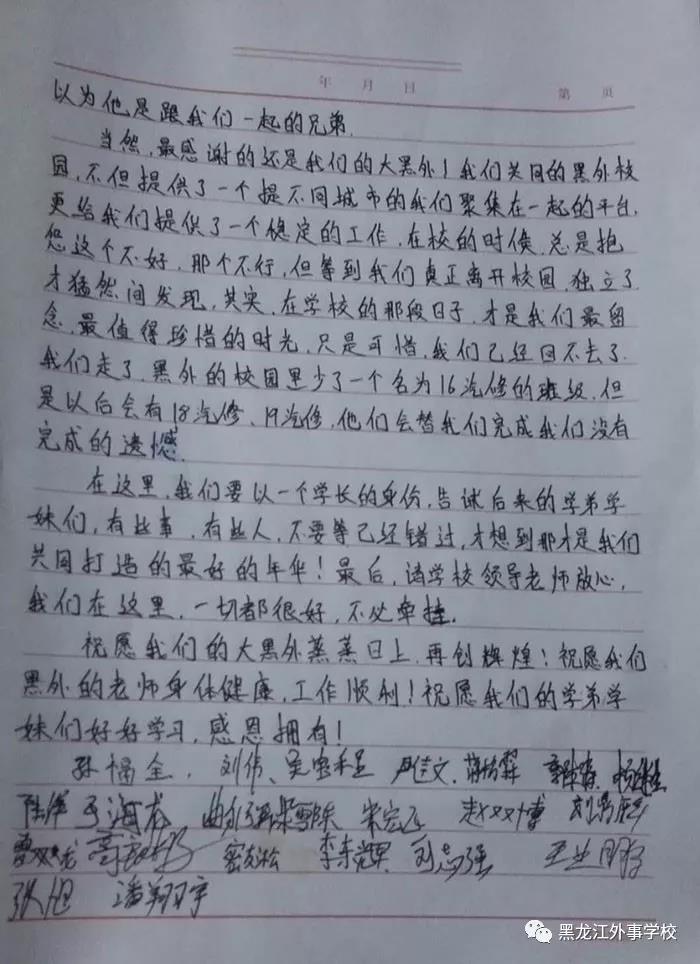 年 月 日 第 页
以为他是跟我们一起的兄弟.
当然,最感谢的还是我们的大黑外!我们共同的黑外校
园,不但提供了一个提不同城市的我们聚集在一起的平台,
更给我们提供了一个稳定的工作,在校的时候,总是抱
怨这个不好,那个不行,但等到我们真正离开校园,独立了,
才猛然间发现,其实,在学校的那段日子,才是我们最留
念,最值得珍惜的时光,只是可惜,我们已经回不去了.
我们走了,黑外的校园里少了一个名为16汽修的班级,但
是以后会有18汽修、19汽修,他们会替我们完成我们没有
完成的遗憾.
在这里,我们要以一个学长的身份,告诫后来的学弟学
妹们,有些事,有些人,不要等已经错过,才想到那才是我们
共同打造的最好的年华!最后,请学校领导老师放心,
我们在这里,一切都很好,不必牵挂.
祝愿我们的大黑外蒸蒸日上,再创辉煌!祝愿我们
黑外的老师身体健康,工作顺利!祝愿我们的学弟学
妹们好好学习,感恩拥有!
刘伟、
海龙
李东辉
张旭 潘翔宇
黑龙江外事学校